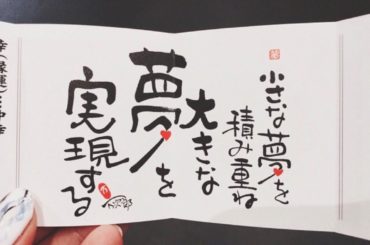 小さな夢を
積み重ね
大きな
夢を
実現する